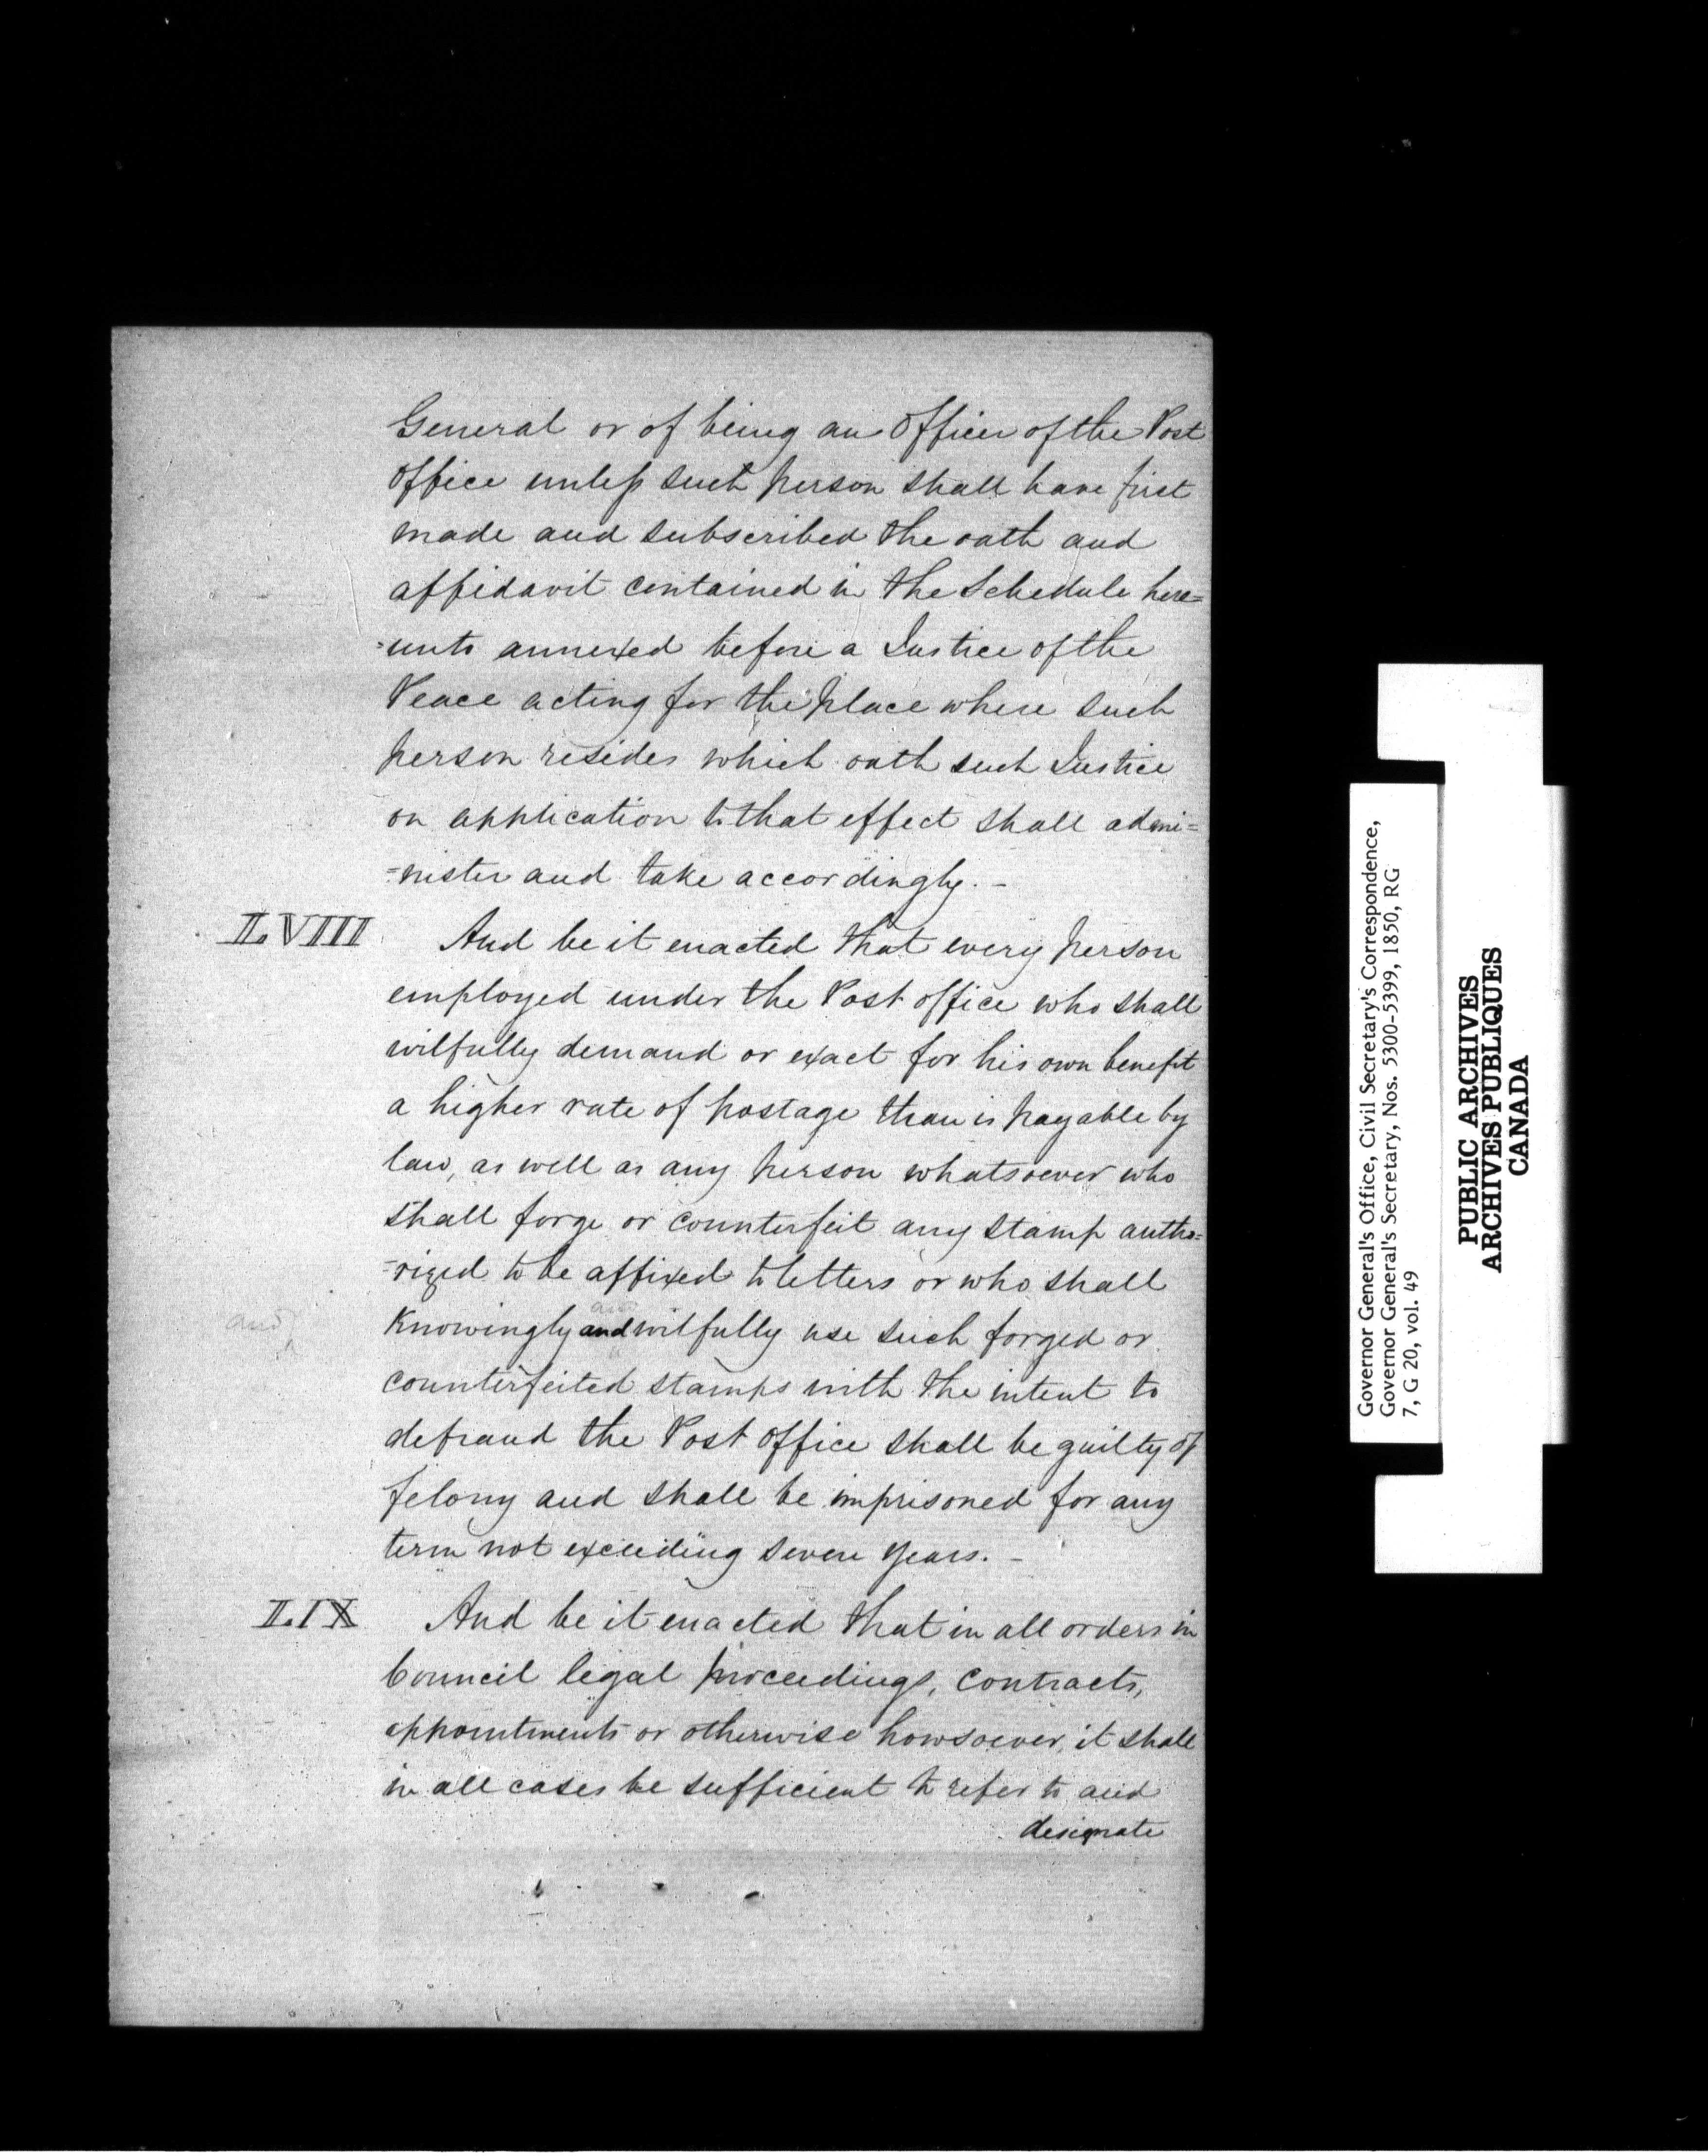 General or of being an Officer of the Post
Office unless such person shall have first
made and subscribed the oath and
affidavit contained in the Schedule here=
=unto annexed before a Justice of the
Peace acting for the place where such
person resides which oath such Justice
on application to that effect shall admi=
=nister and take accordingly. –
LVIII And be it enacted that every person
employed under the Post office who shall
wilfully demand or exact for his own benefit
a higher rate of postage than is payable by
law, as well as any person whatsoever who
shall forge or counterfeit any stamp autho=
=rized to be affixed to letters or who shall
and
and
Knowingly and wilfully use such forged or
counterfeited stamps with the intent to
defraud the Post Office shall be guilty of
felony and shall be imprisoned for any
term not exceeding seven years. –
LIX And be it enacted that in all orders in
Council legal proceedings, contracts,
appointments or otherwise howsoever, it shall
in all cases be sufficient to refer to and
designate
Governor General's Office, Civil Secretary's Correspondence,
Governor General's Secretary, Nos. 5300-5399, 1850, RG
7, G 20, vol. 49
PUBLIC ARCHIVES
ARCHIVES PUBLIQUES
CANADA